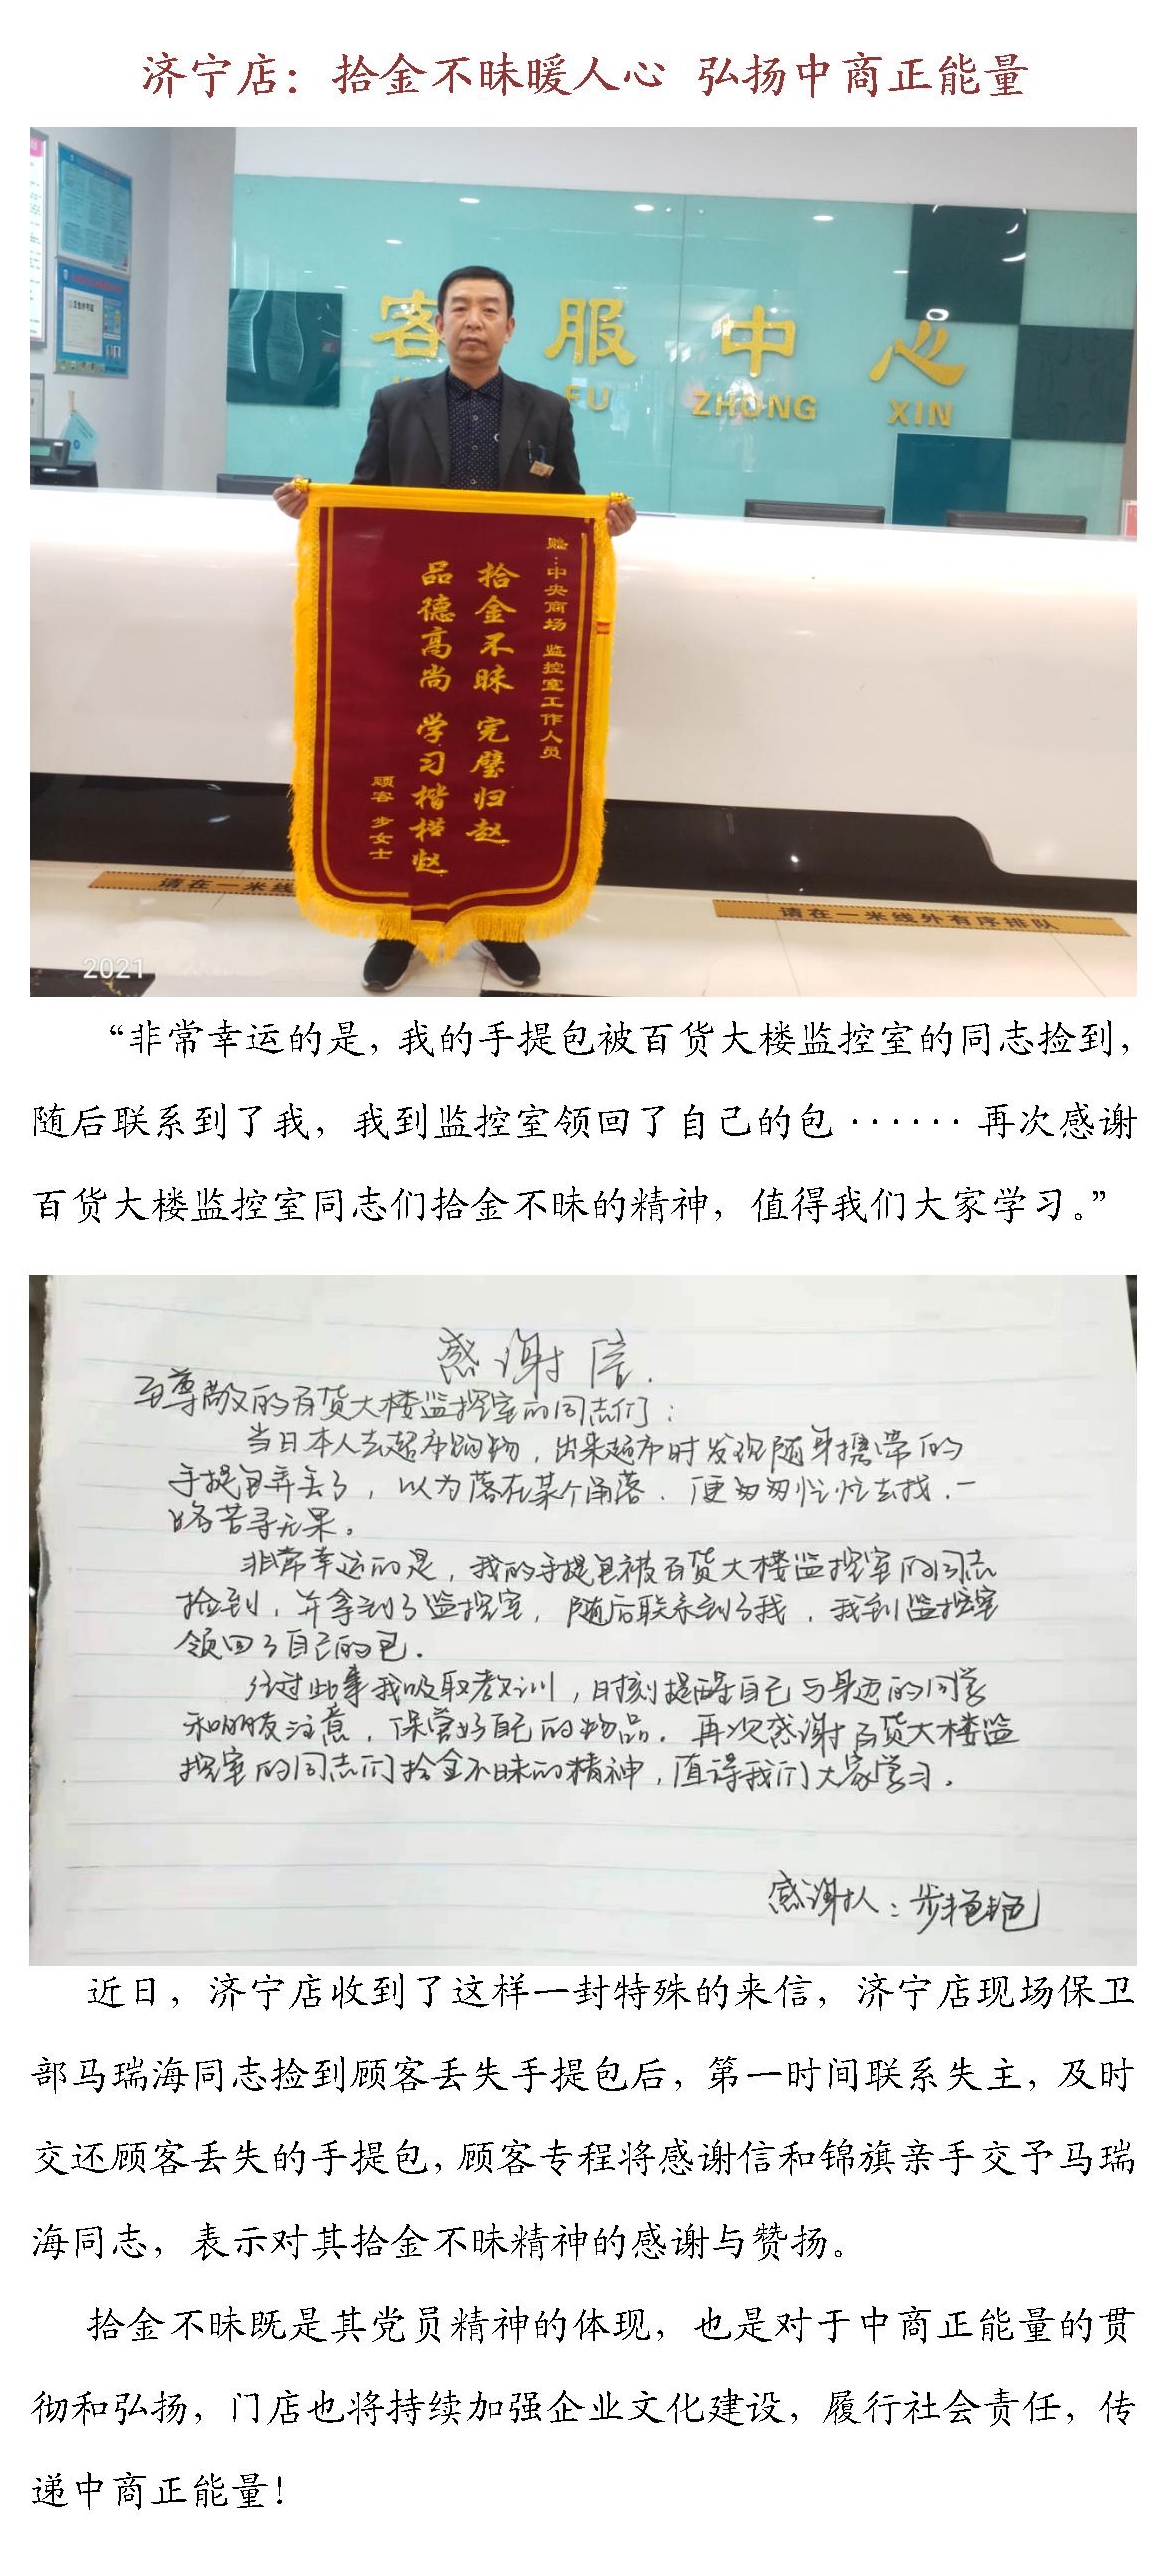 济宁店：拾金不昧暖人心 弘扬中商正能量
客服中心
FU ZHONG XIN
赠：中央商场 监控室工作人员
拾金不昧 完璧归赵
品德高尚 学习楷模
顾客 步女士
请在一米线
请在一米线外有序排队
2021
“非常幸运的是，我的手提包被百货大楼监控室的同志捡到，
随后联系到了我，我到监控室领回了自己的包······再次感谢
百货大楼监控室同志们拾金不昧的精神，值得我们大家学习。”
感谢信.
至尊敬的百货大楼监控室的同志们：
当日本人去超市购物，出来超市时发现随身携带的
手提包弄丢了，以为落在某个角落．便匆匆忙忙去找．一
路苦寻无果。
非常幸运的是，我的手提包被百货大楼监控室的同志
捡到，并拿到了监控室，随后联系到了我，我到监控室
领回了自己的包．
经过此事我吸取教训，时刻提醒自己与身边的同学
和朋友注意，保管好自己的物品．再次感谢百货大楼监
控室的同志们拾金不昧的精神，值得我们大家学习．
感谢人：步艳艳
近日，济宁店收到了这样一封特殊的来信，济宁店现场保卫
部马瑞海同志捡到顾客丢失手提包后，第一时间联系失主，及时
交还顾客丢失的手提包，顾客专程将感谢信和锦旗亲手交予马瑞
海同志，表示对其拾金不昧精神的感谢与赞扬。
拾金不昧既是其党员精神的体现，也是对于中商正能量的贯
彻和弘扬，门店也将持续加强企业文化建设，履行社会责任，传
递中商正能量！